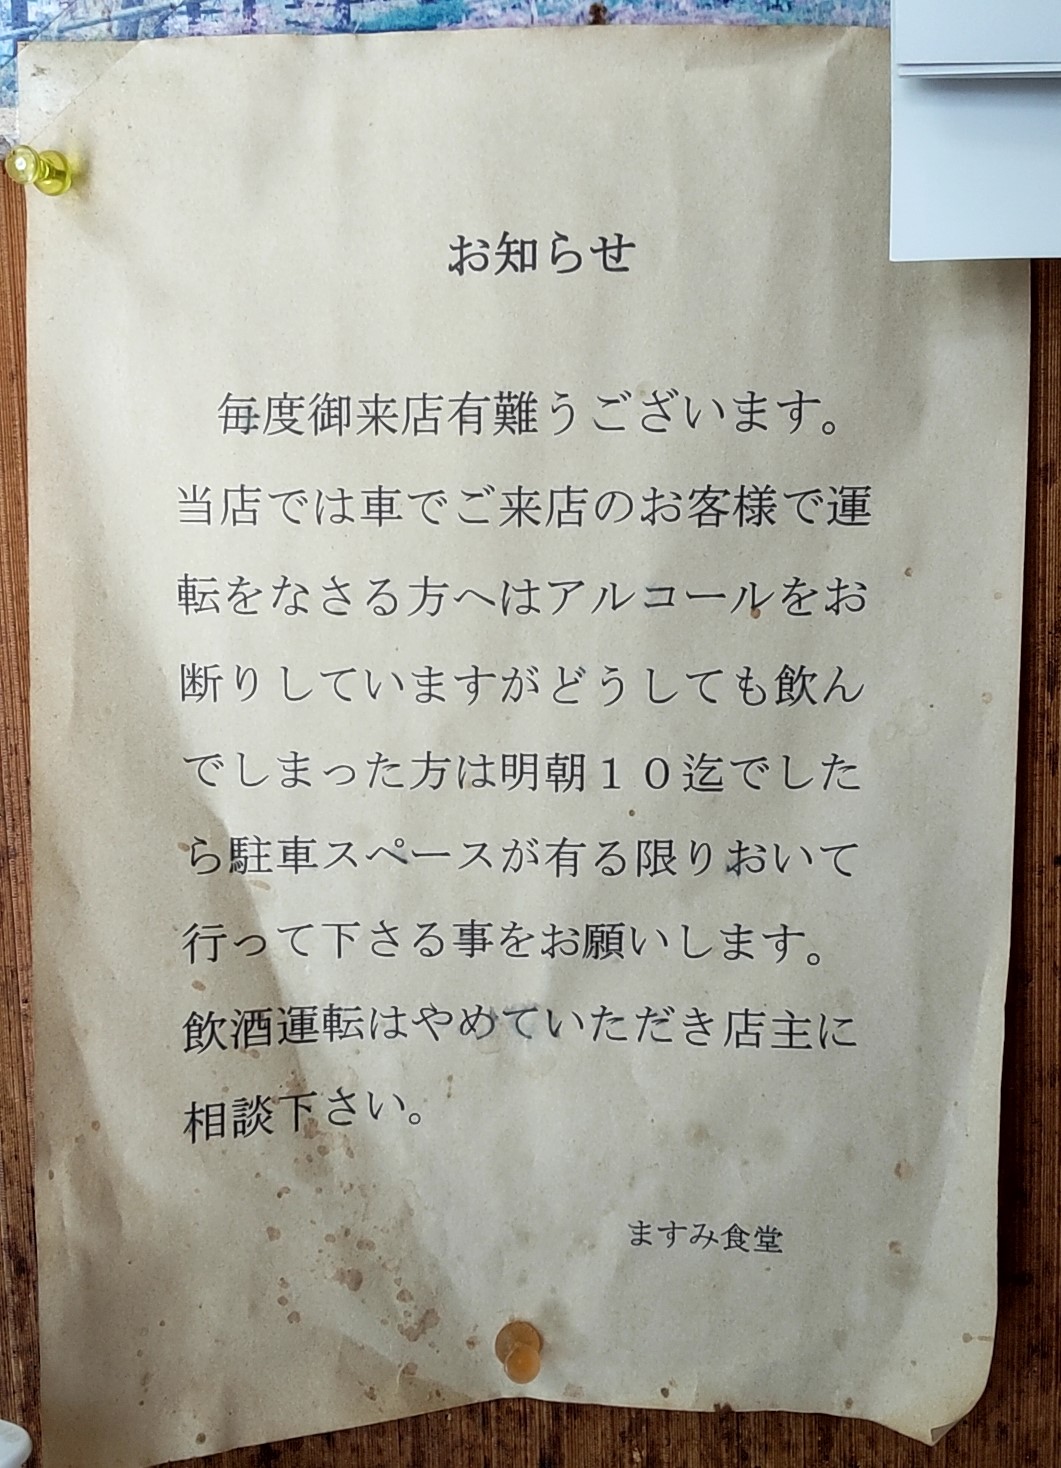 お知らせ
毎度御来店有難うございます。
当店では車でご来店のお客様で運
転をなさる方へはアルコールをお
断りしていますがどうしても飲ん
でしまった方は明朝１０迄でした
ら駐車スペースが有る限りおいて
行って下さる事をお願いします。
飲酒運転はやめていただき店主に
相談下さい。
ますみ食堂